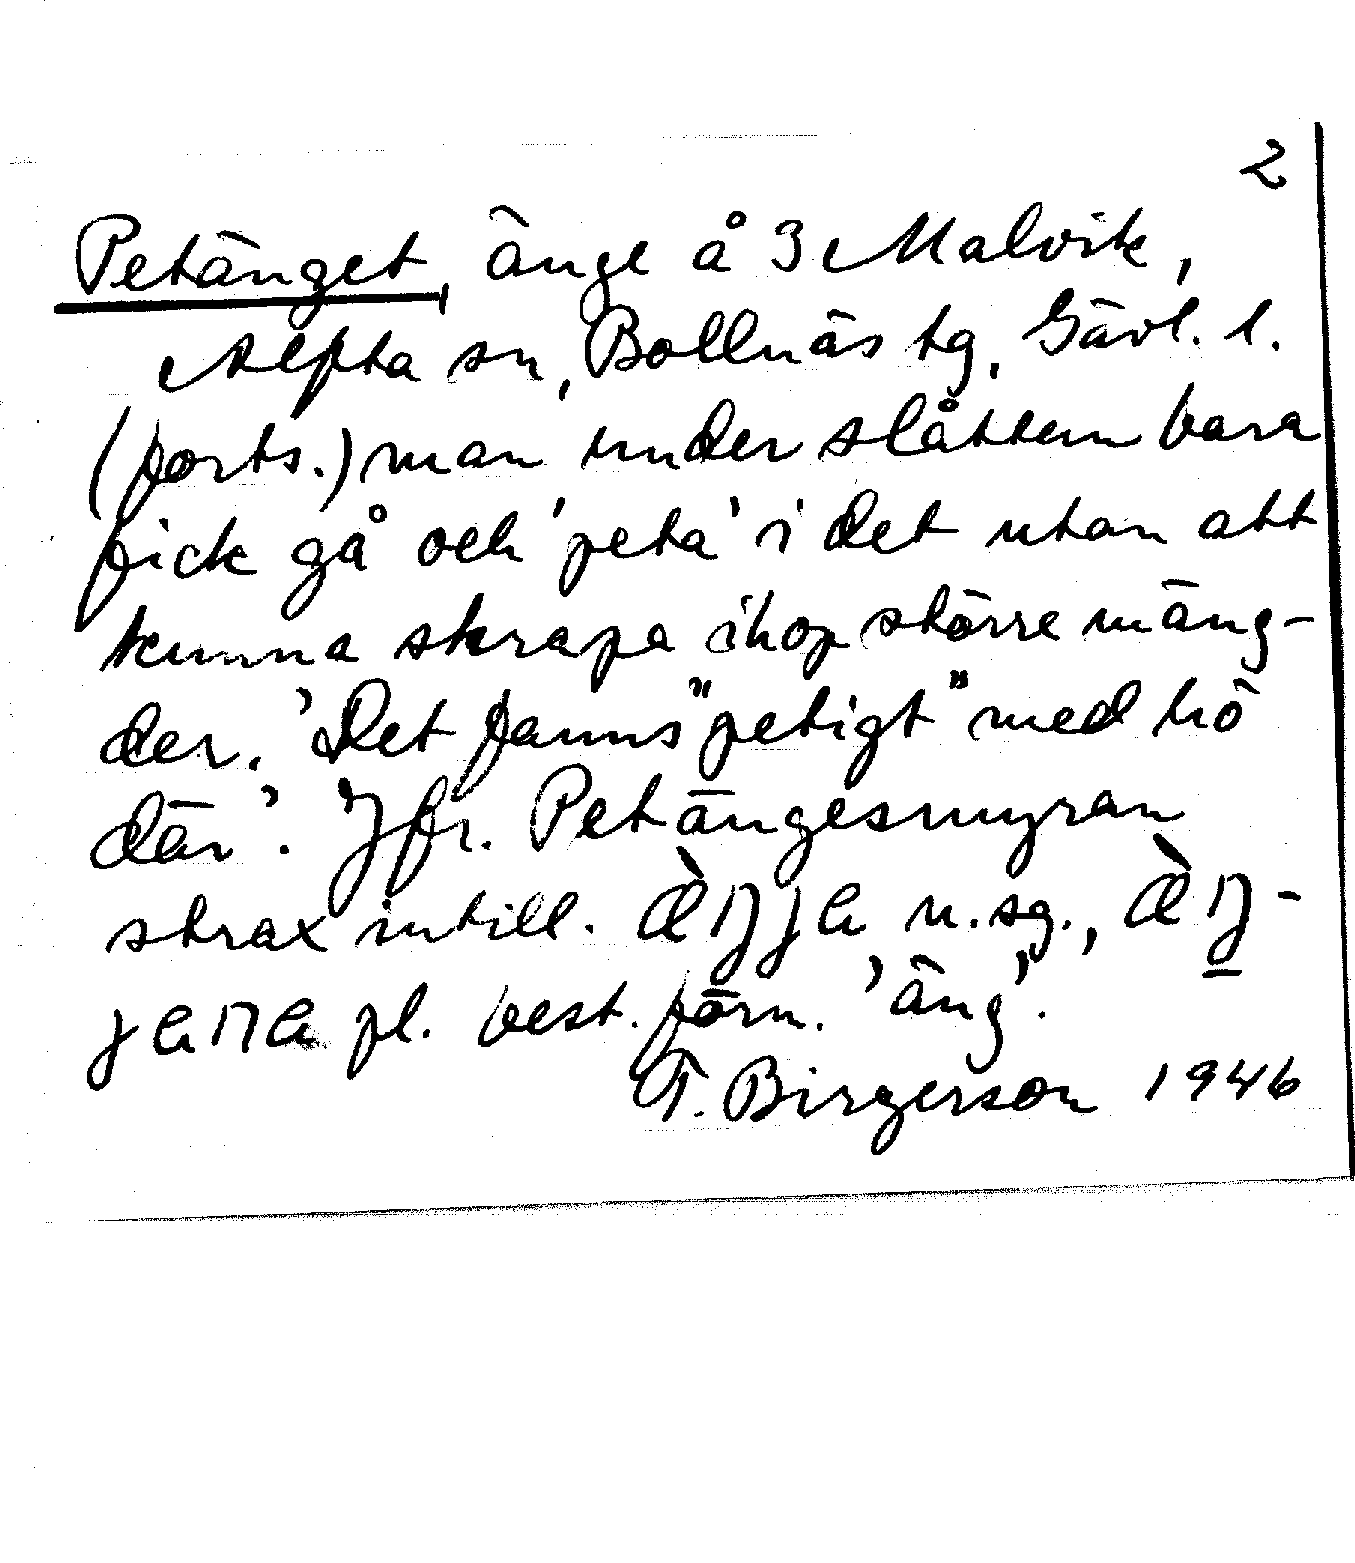 2
Petänget, änge å 3 Malvik,
Alfta sn, Bollnäs tg, Gävl. l.
(forts.) man under slåttern bara
fick gå och 'peta' i det utan att
kunna skrapa ihop större mäng-
der. 'Det fanns "petigt" med hö
där'. Jfr. Petängesmyran
strax intill. æ̀ŋja n.sg., æ̀ŋ-
jana pl. best. form. 'äng'.
T. Birgerson 1946